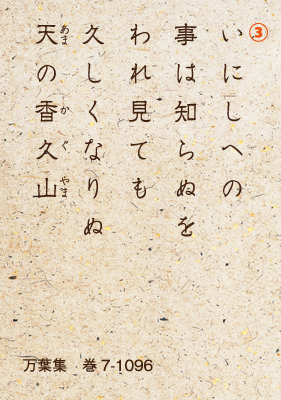 ③
いにしへの
事は知らぬを
われ見ても
久しくなりぬ
天の香久山
あま
か
ぐ
やま
万葉集 巻7-1096